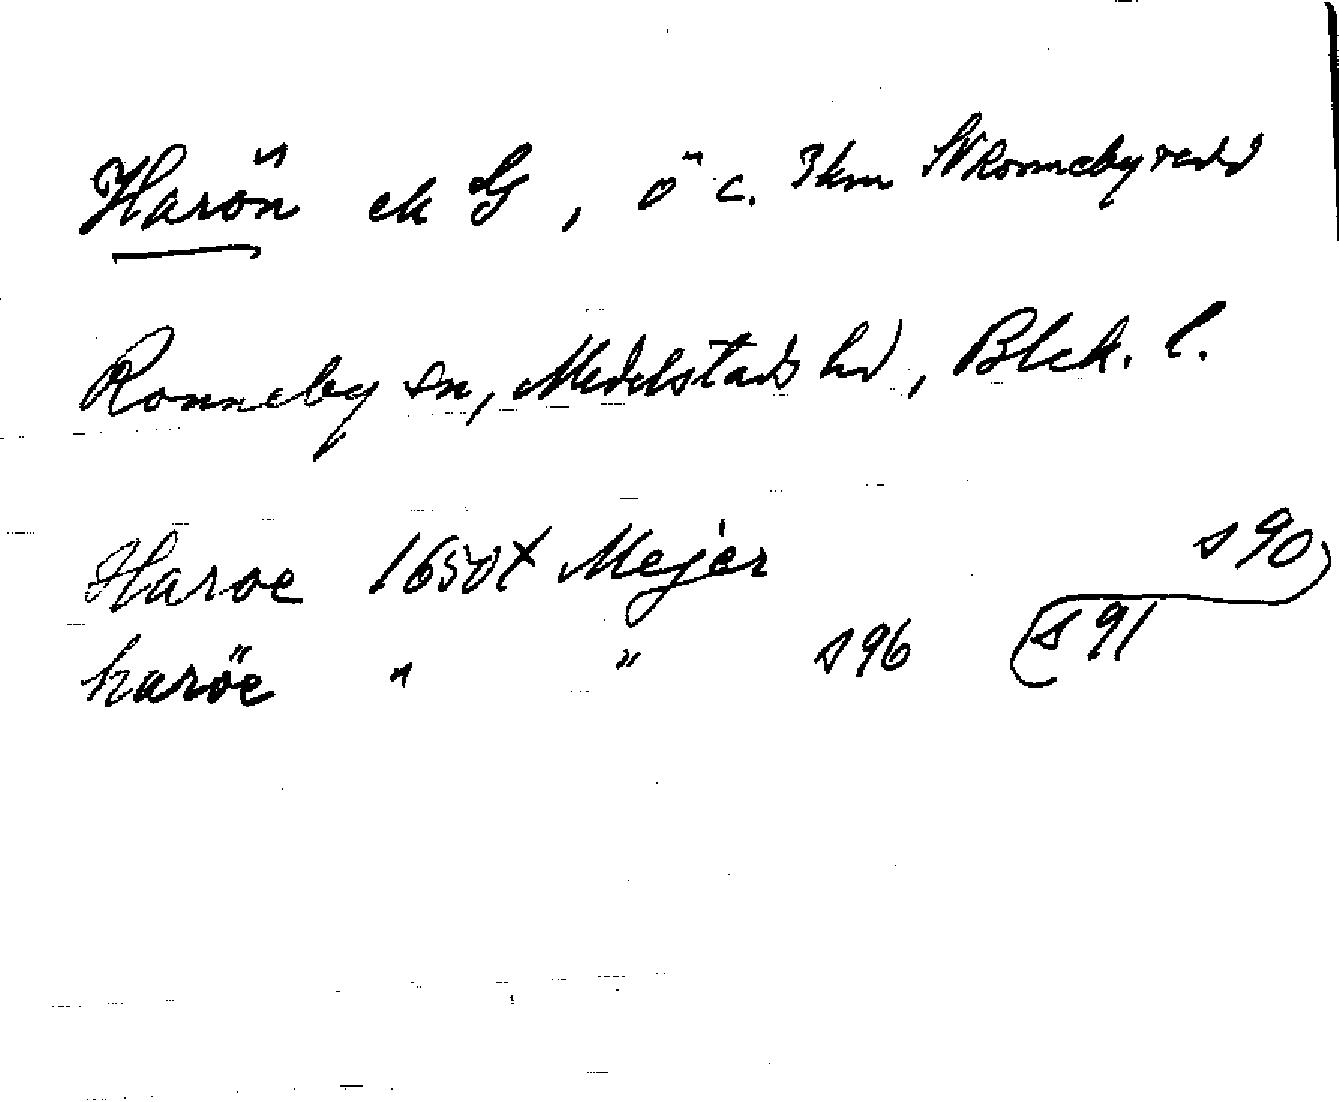 Harön ek G, ö c. 3 km SV Ronneby redd
Ronneby sn, Medelstads hd, Blek. l.
Haroe 1650t Mejer s 90
haröe " " s 96 s 91